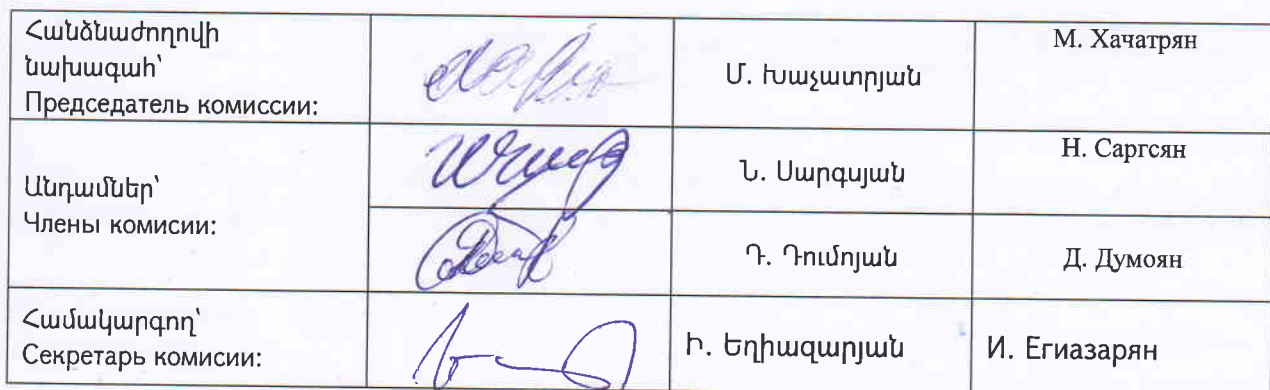 Հանձնաժողովի
նախագահ՝
Председатель комиссии:
Մ. Խաչատրյան
М. Хачатрян
Անդամներ՝
Члены комисии:
Ն. Սարգսյան
Н. Саргсян
Դ. Դումոյան
Д. Думоян
Համակարգող՝
Секретарь комисии:
Ի. Եղիազարյան
И. Егиазарян